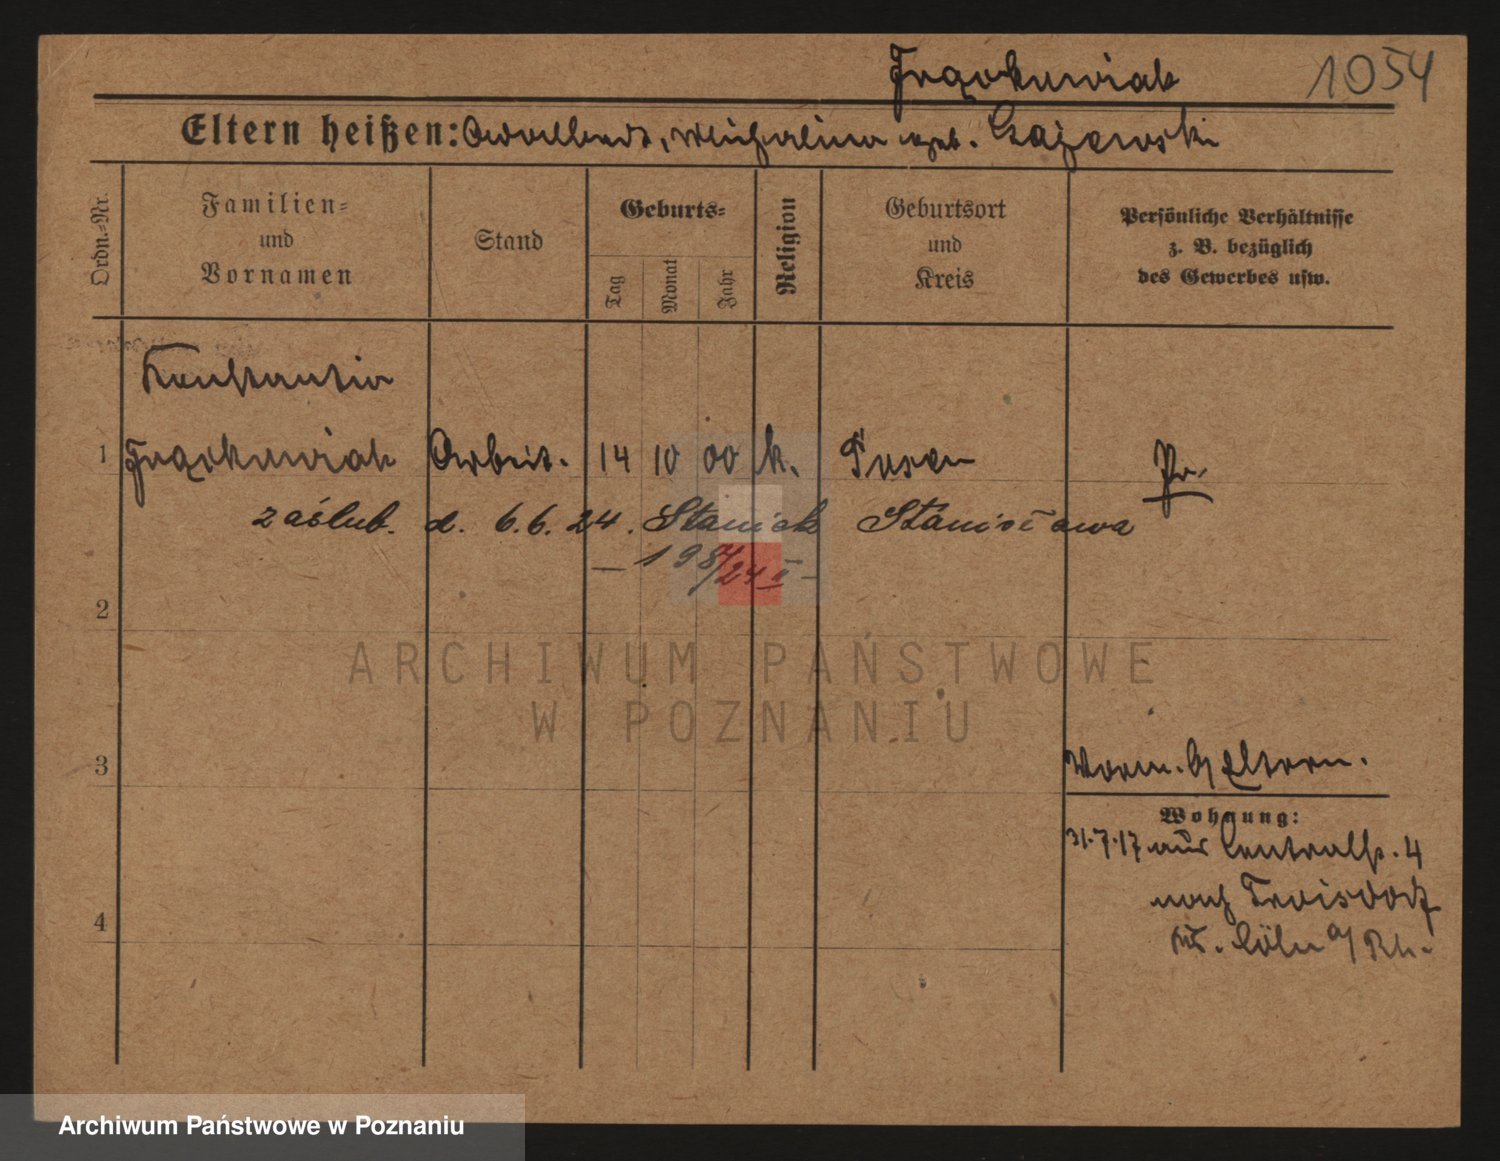 1054
Eltern heißen: geb.
Ordn.=Nr.
Familien=
und
Vornamen
Stand
Geburts=
Tag
Monat
Jahr
Religion
Geburtsort
und
Kreis
Persönliche Verhältnisse
z. B. bezüglich
des Gewerbes usw.
1 Arbeit. 14 10 00 k. Posen Pr.
zaślub. d. 6.6.24. Stanisława
— 198/24 II —
2
3
Eltern.
Wohnung:
31.7.17 aus Centralstr. 4
nach Troisdorf
Cöln a/Rh.
4
ARCHIWUM PAŃSTWOWE
W POZNANIU
Archiwum Państwowe w Poznaniu